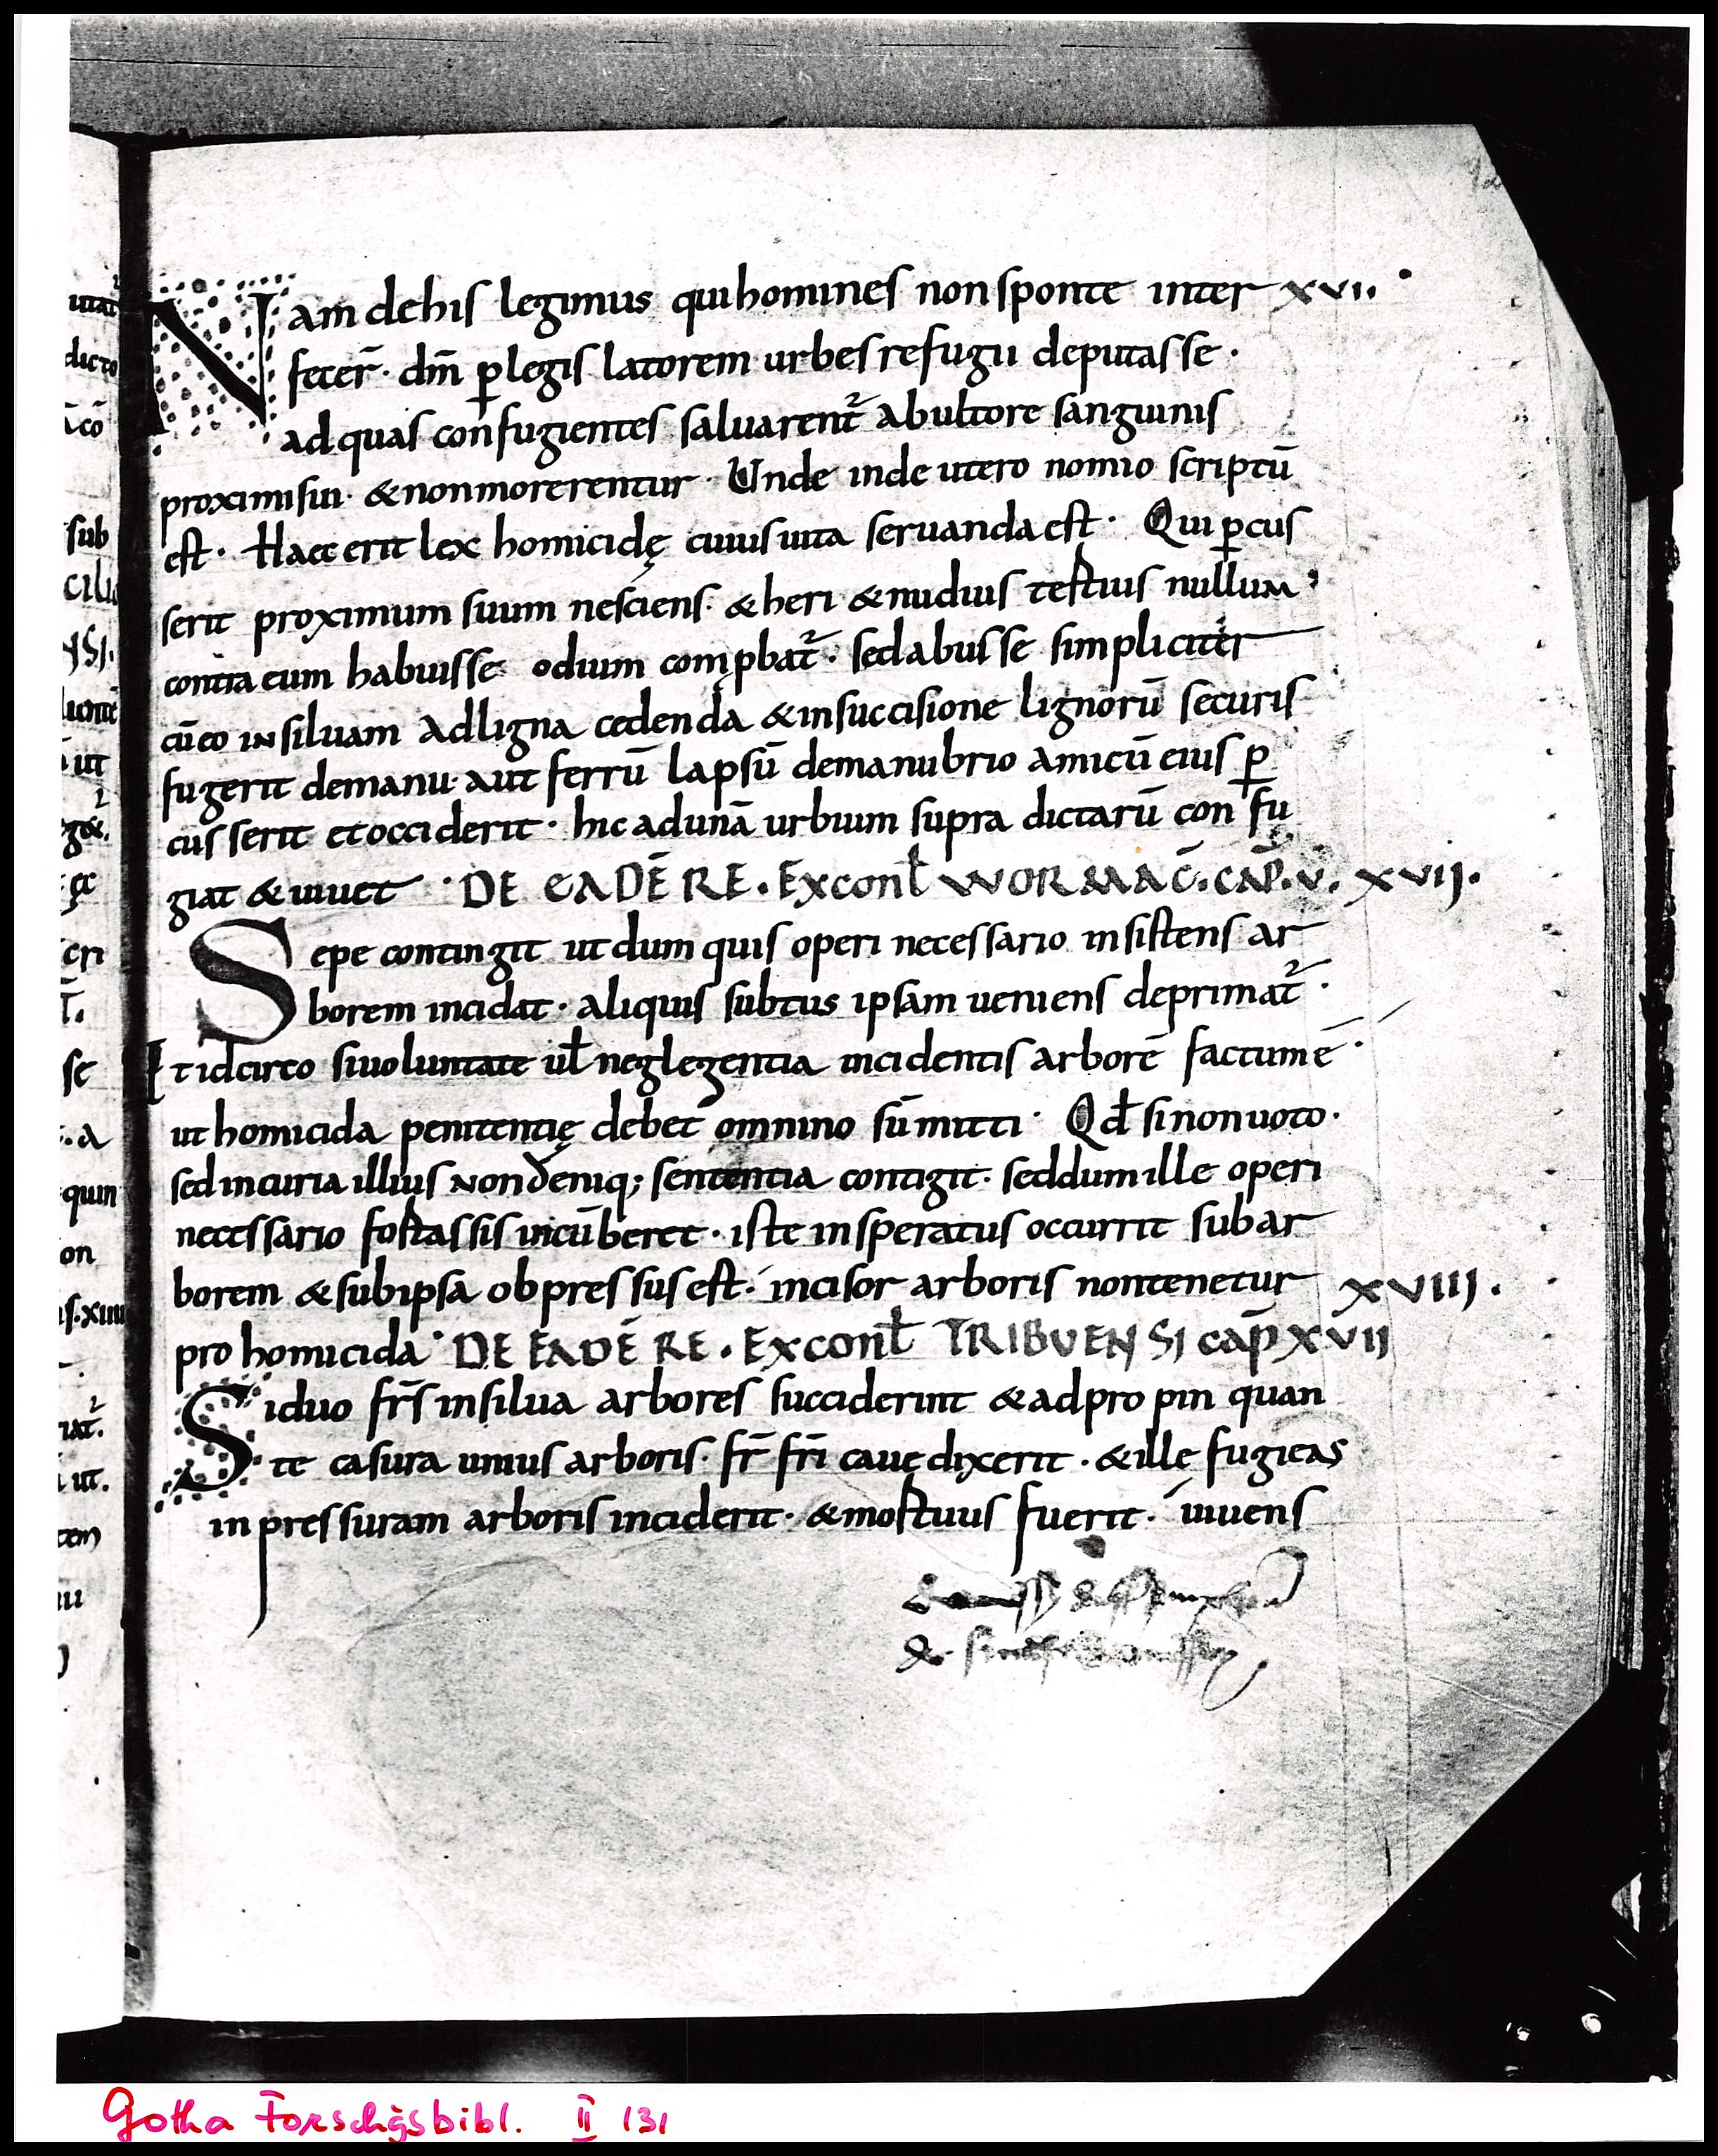 Nam dehis legimus qui homines non sponte inter xvii.
fecer̄· dm̄ ꝑlegis latorem urbes refugii deputasse·
ad quas confugientes saluarent̄ ab ultore sanguinis
proximi sui· & non morerentur· Unde in deutero nomio scriptū
est· Haec erit lex homicidę cuius uita seruanda est· Qui ꝑcus
serit proximum suum nesciens· & heri & nudius tertius nullum
contra eum habuisse odium comꝓbat̄· sed abiisse simpliciter
cū eo in siluam ad ligna cedenda & in succisione lignorū securis
fugerit de manu· aut ferrū lapsū de manubrio amicū eius ꝑ
cusserit et occiderit· hic ad unā urbium supra dictarū confu
giat & uiuet· DE EADĒ RE. Ex conł WORMAC̄. CAP̄. V. XVII.
Sepe contingit ut dum quis operi necessario insistens ar
borem incidat· aliquis subtus ipsam ueniens deprimat̄·
Et idcirco si uoluntate uł neglegentia incidentis arborē factum ē·
ut homicida penitentię debet omnino sūmitti· Qd̄ si non uoto·
sed incuria illius non deniq; sententia contigit· sed dum ille operi
necessario fortassis incūberet· iste insperatus occurrit sub ar
borem & sub ipsa obpressus est· incisor arboris non tenetur XVIII.
pro homicida· DE EADĒ RE. Ex conł TRIBUENSI cap̄ XVII
Si duo fr̄s in silua arbores succiderint & adpropinquan
te casura unius arboris· fr̄ fr̄i caue dixerit· & ille fugiens
in pressuram arboris inciderit· & mortuus fuerit· uiuens
Gotha Forschgsbibl. II 131